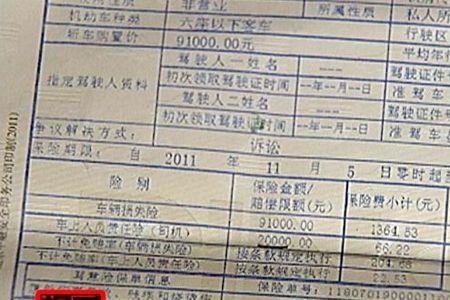 使用性质 非营业 所属性质
机动车种类 六座以下客车 私人所
新车购置价 91000.00元 行驶区
平均年
指定驾驶人资料 驾驶人一姓名 --- 驾驶证件号
初次领取驾驶证时间 --年--月--日 准驾车
驾驶人二姓名 --- 驾驶证号
初次领取驾驶证时间 --年--月--日 准驾车
争议解决方式: 诉讼
保险期限: 自 2011 年 11 月 5 日零时起至
险别 保险金额/赔偿限额(元) 保险费小计(元)
车辆损失险 91000.00 1364.53
车上人员责任险(司机) 20000.00 66.22
不计免赔率(车辆损失险) 按条款规定执行 204.68
不计免赔率(车上人员责任险) 按条款规定执行 22.53
耳意险保单信息 保险单号: 11807019000
安全印务公司印制(2011)